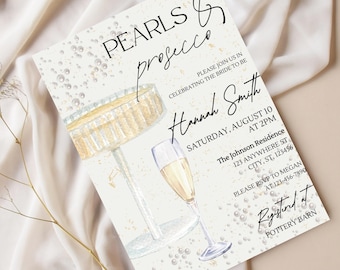 PEARLS &
prosecco
PLEASE JOIN US IN
CELEBRATING THE BRIDE TO BE
Hannah Smith
SATURDAY, AUGUST 10
AT 2PM
The Johnson Residence
123 ANYWHERE ST
CITY, ST, 123456
PLEASE RSVP TO MEGAN
AT 123-456-7890
Registered at
POTTERY BARN